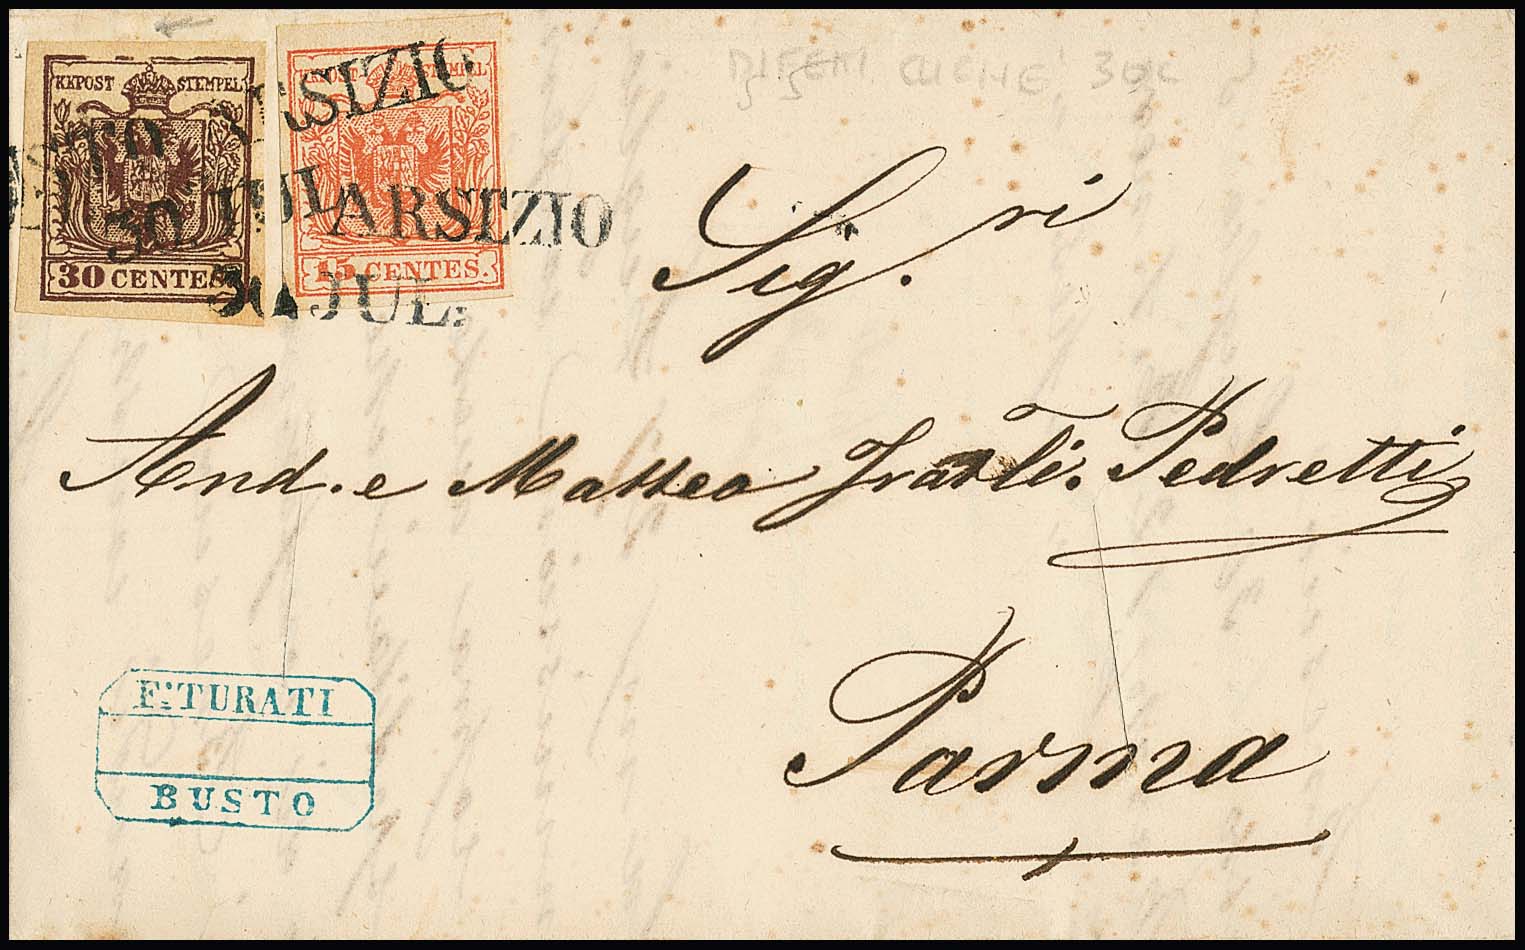 KKPOST STEMPEL
30 CENTES.
KKPOST STEMPEL
15 CENTES.
BUSTO ARSIZIO
30. JUL.
ARSIZIO
30 JUL.
DIFETTI CLICHE' 30C
Sig.ri
And. e Matteo Fratli. Pedretti
Parma
F: TURATI
BUSTO